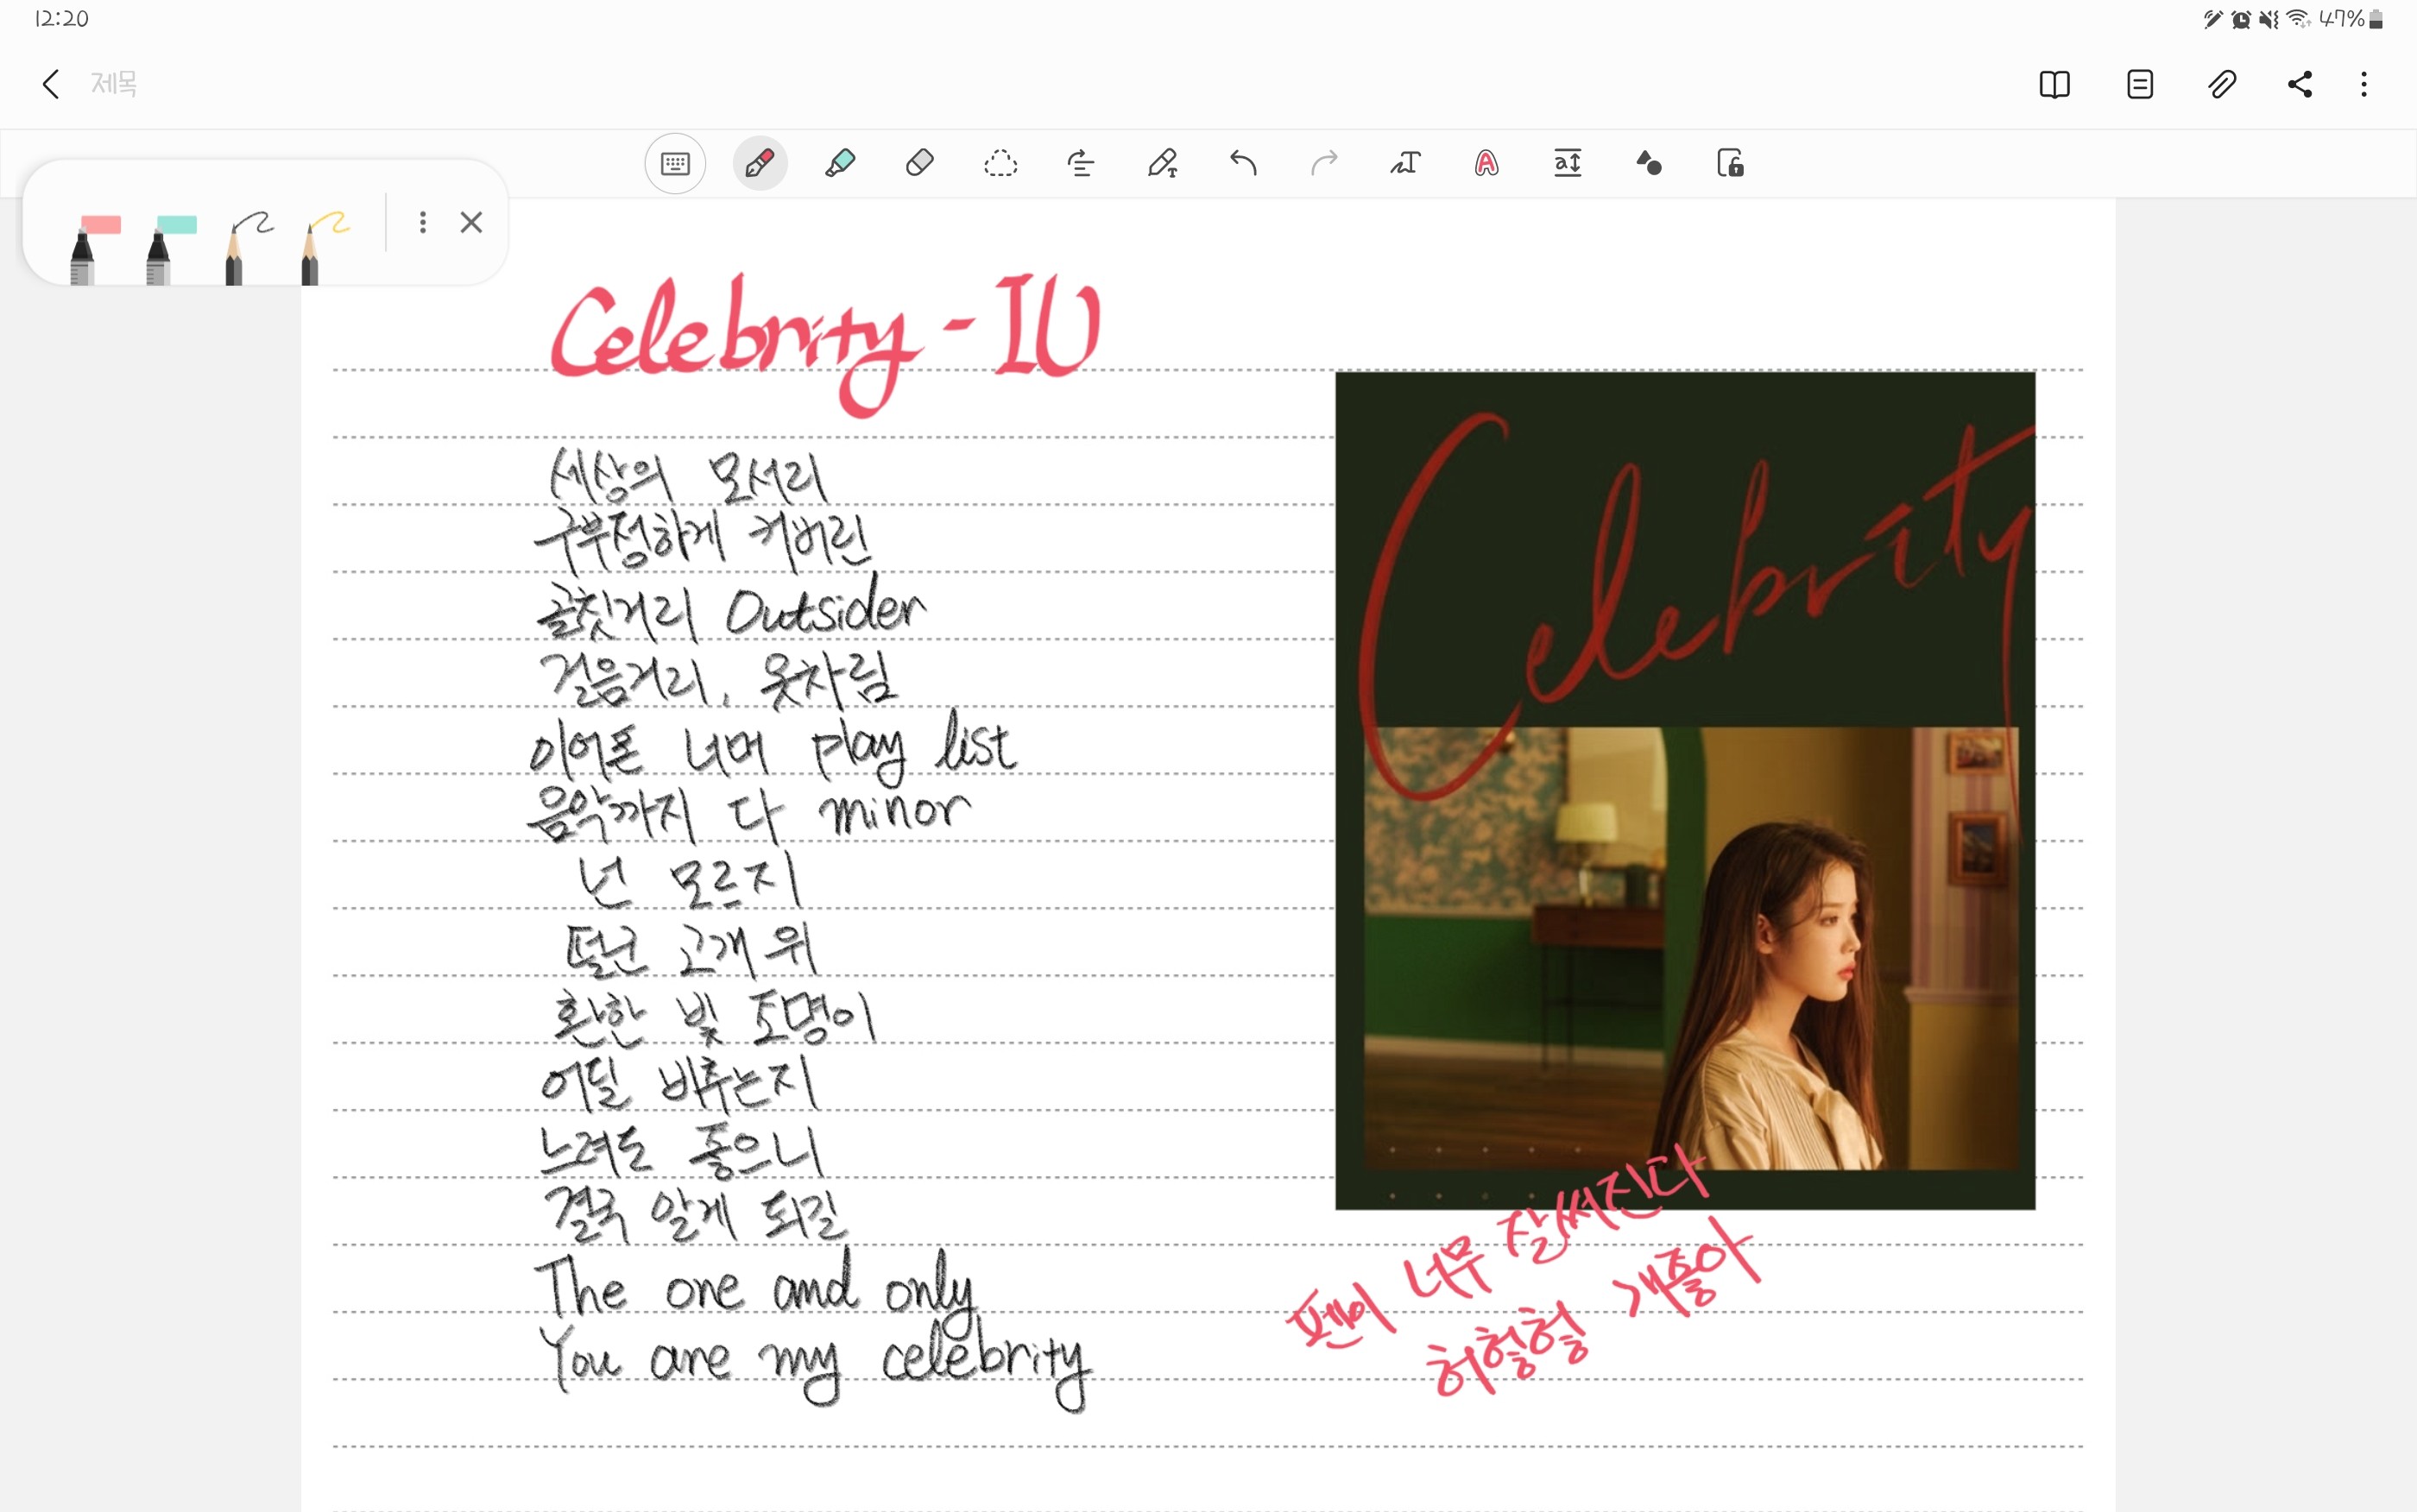 12:20
47%
제목
Celebrity - IU
세상의 모서리
구부정하게 커버린
골칫거리 Outsider
걸음거리, 옷차림
이어폰 너머 play list
음악까지 다 minor
넌 모르지
떨군 고개 위
환한 빛 조명이
어딜 비추는지
느려도 좋으니
결국 알게 되길
The one and only
You are my celebrity
Celebrity
펜이 너무 잘써진다
허헣헣 개좋아